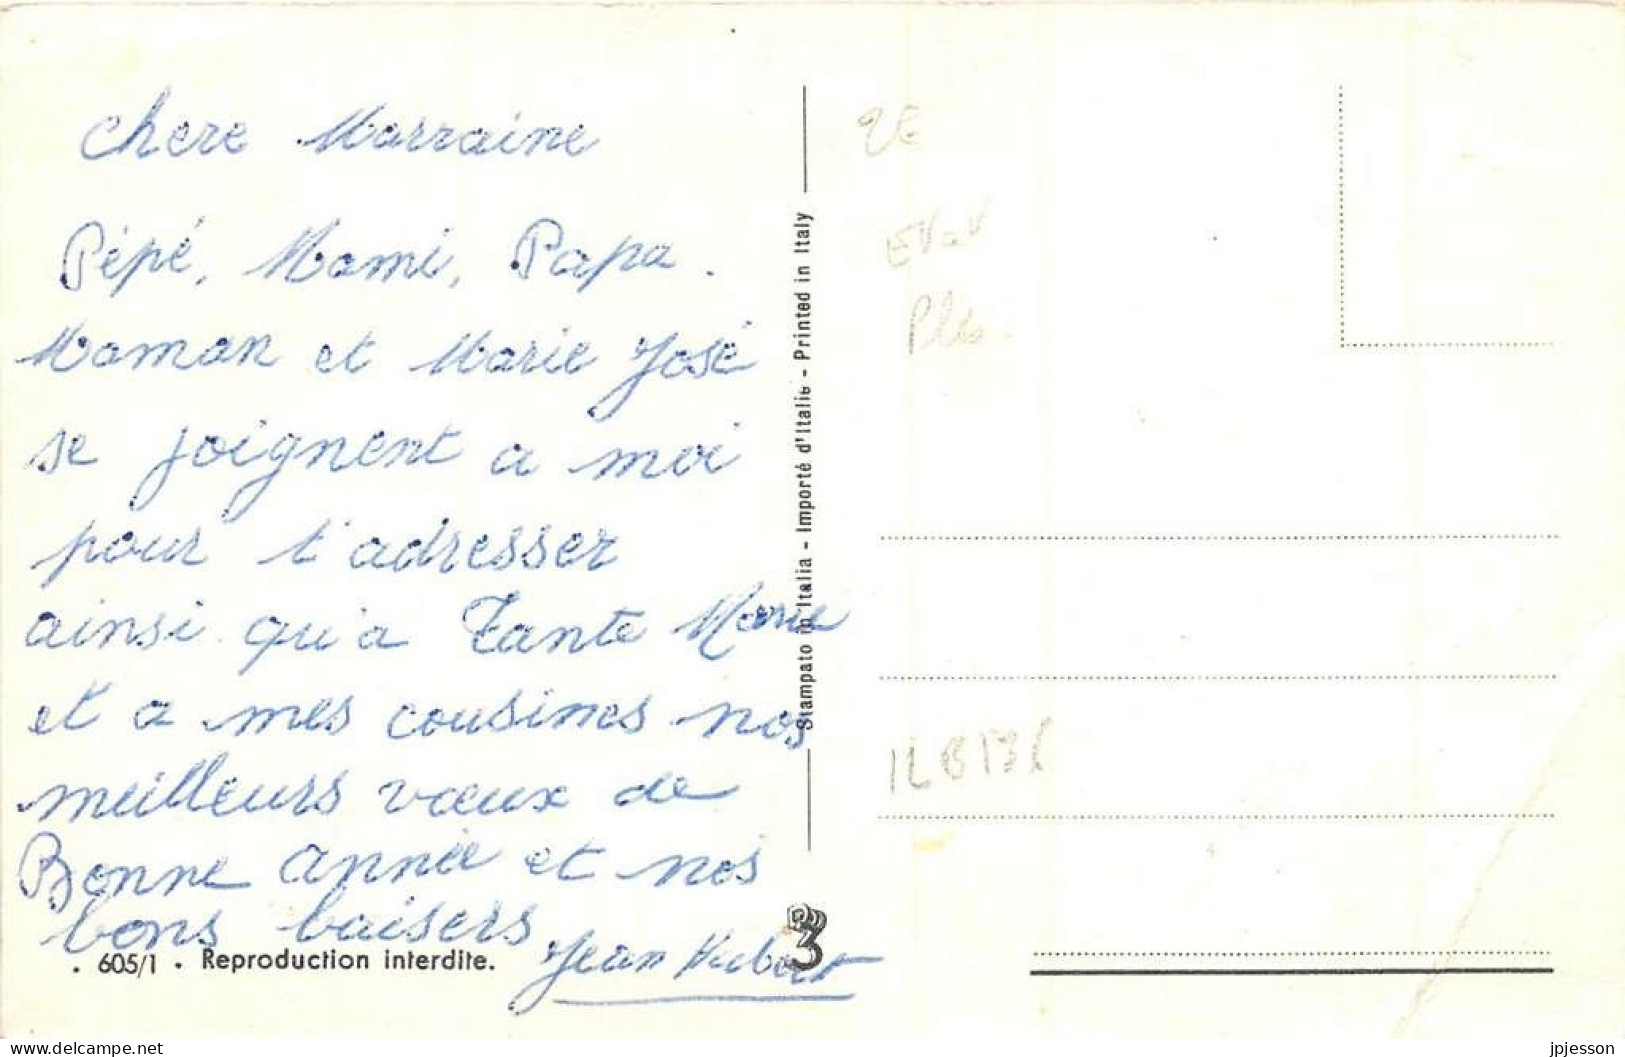 chere Marraine
Pépé, Mami, Papa.
Maman et Marie José
se joignent a moi
pour t'adresser
ainsi qu'a Tante Marie
et a mes cousines nos
meilleurs vœux de
Bonne année et nos
bons baisers
Jean Hubert
. 605/1 . Reproduction interdite.
Stampato in Italia - Importé d'Italie - Printed in Italy
3
2E
delcampe.net
jpjesson